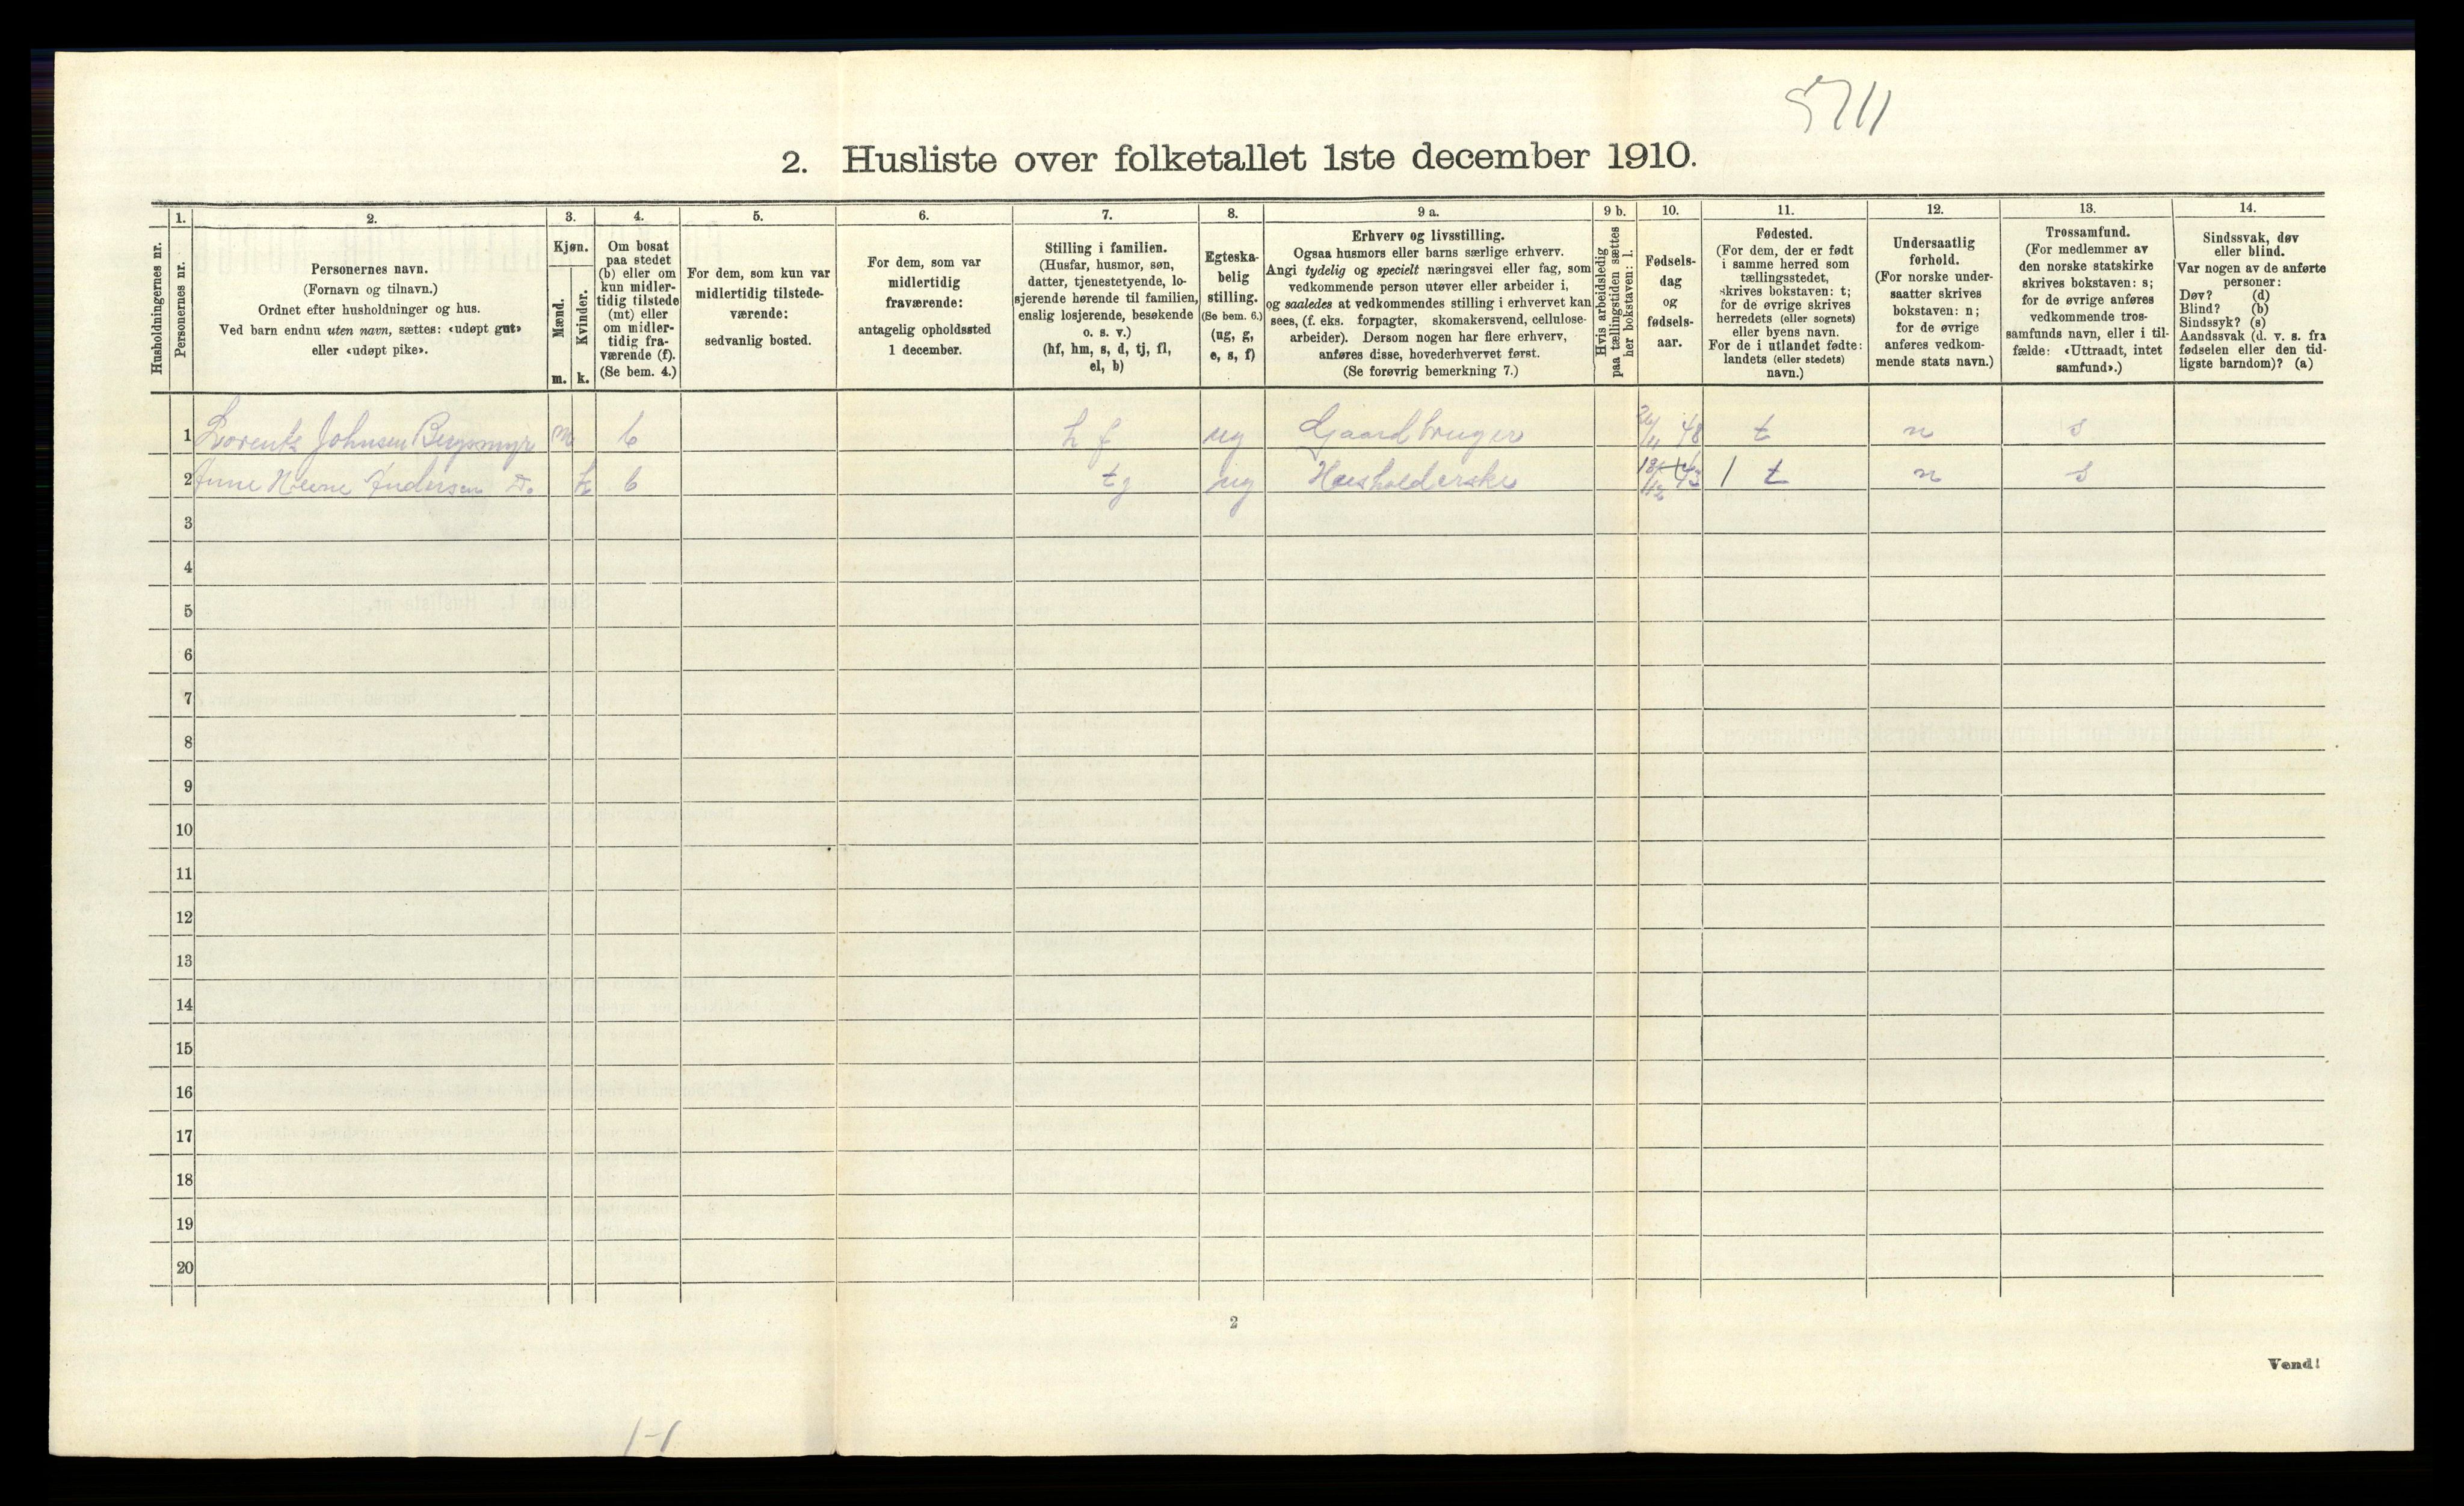 5711
2. Husliste over folketallet 1ste december 1910.
Husholdningernes nr.
1.
Personernes nr.
2.
Personernes navn.
(Fornavn og tilnavn.)
Ordnet efter husholdninger og hus.
Ved barn endnu uten navn, sættes: «udøpt gut»
eller «udøpt pike».
3.
Kjøn.
Mænd.
Kvinder.
m. k.
4.
Om bosat
paa stedet
(b) eller om
kun midler-
tidig tilstede
(mt) eller
om midler-
tidig fra-
værende (f).
(Se bem. 4.)
5.
For dem, som kun var
midlertidig tilstede-
værende:
sedvanlig bosted.
6.
For dem, som var
midlertidig
fraværende:
antagelig opholdssted
1 december.
7.
Stilling i familien.
(Husfar, husmor, søn,
datter, tjenestetyende, lo-
sjerende hørende til familien,
enslig losjerende, besøkende
o. s. v.)
(hf, hm, s, d, tj, fl,
el, b)
8.
Egteska-
belig
stilling.
(Se bem. 6.)
(ug, g,
e, s, f)
9 a.
Erhverv og livsstilling.
Ogsaa husmors eller barns særlige erhverv.
Angi tydelig og specielt næringsvei eller fag, som
vedkommende person utøver eller arbeider i,
og saaledes at vedkommendes stilling i erhvervet kan
sees, (f. eks. forpagter, skomakersvend, cellulose-
arbeider). Dersom nogen har flere erhverv,
anføres disse, hovederhvervet først.
(Se forøvrig bemerkning 7.)
9 b.
Hvis arbeidsledig
paa tællingstiden sættes
her bokstaven: l.
10.
Fødsels-
dag
og
fødsels-
aar.
11.
Fødested.
(For dem, der er født
i samme herred som
tællingsstedet,
skrives bokstaven: t;
for de øvrige skrives
herredets (eller sognets)
eller byens navn.
For de i utlandet fødte:
landets (eller stedets)
navn.)
12.
Undersaatlig
forhold.
(For norske under-
saatter skrives
bokstaven: n;
for de øvrige
anføres vedkom-
mende stats navn.)
13.
Trossamfund.
(For medlemmer av
den norske statskirke
skrives bokstaven: s;
for de øvrige anføres
vedkommende tros-
samfunds navn, eller i til-
fælde: «Uttraadt, intet
samfund».)
14.
Sindssvak, døv
eller blind.
Var nogen av de anførte
personer:
Døv? (d)
Blind? (b)
Sindssyk? (s)
Aandssvak (d. v. s. fra
fødselen eller den tid-
ligste barndom)? (a)
1 Lorentz Johnsen Bergsmyr m b hf ug Gaardbruger 48 t n s
2 Anne Andersen Do k b tj ug Husholderske 43 t n s
3
4
5
6
7
8
9
10
11
12
13
14
15
16
17
18
19
20
2
Vend!
1-1